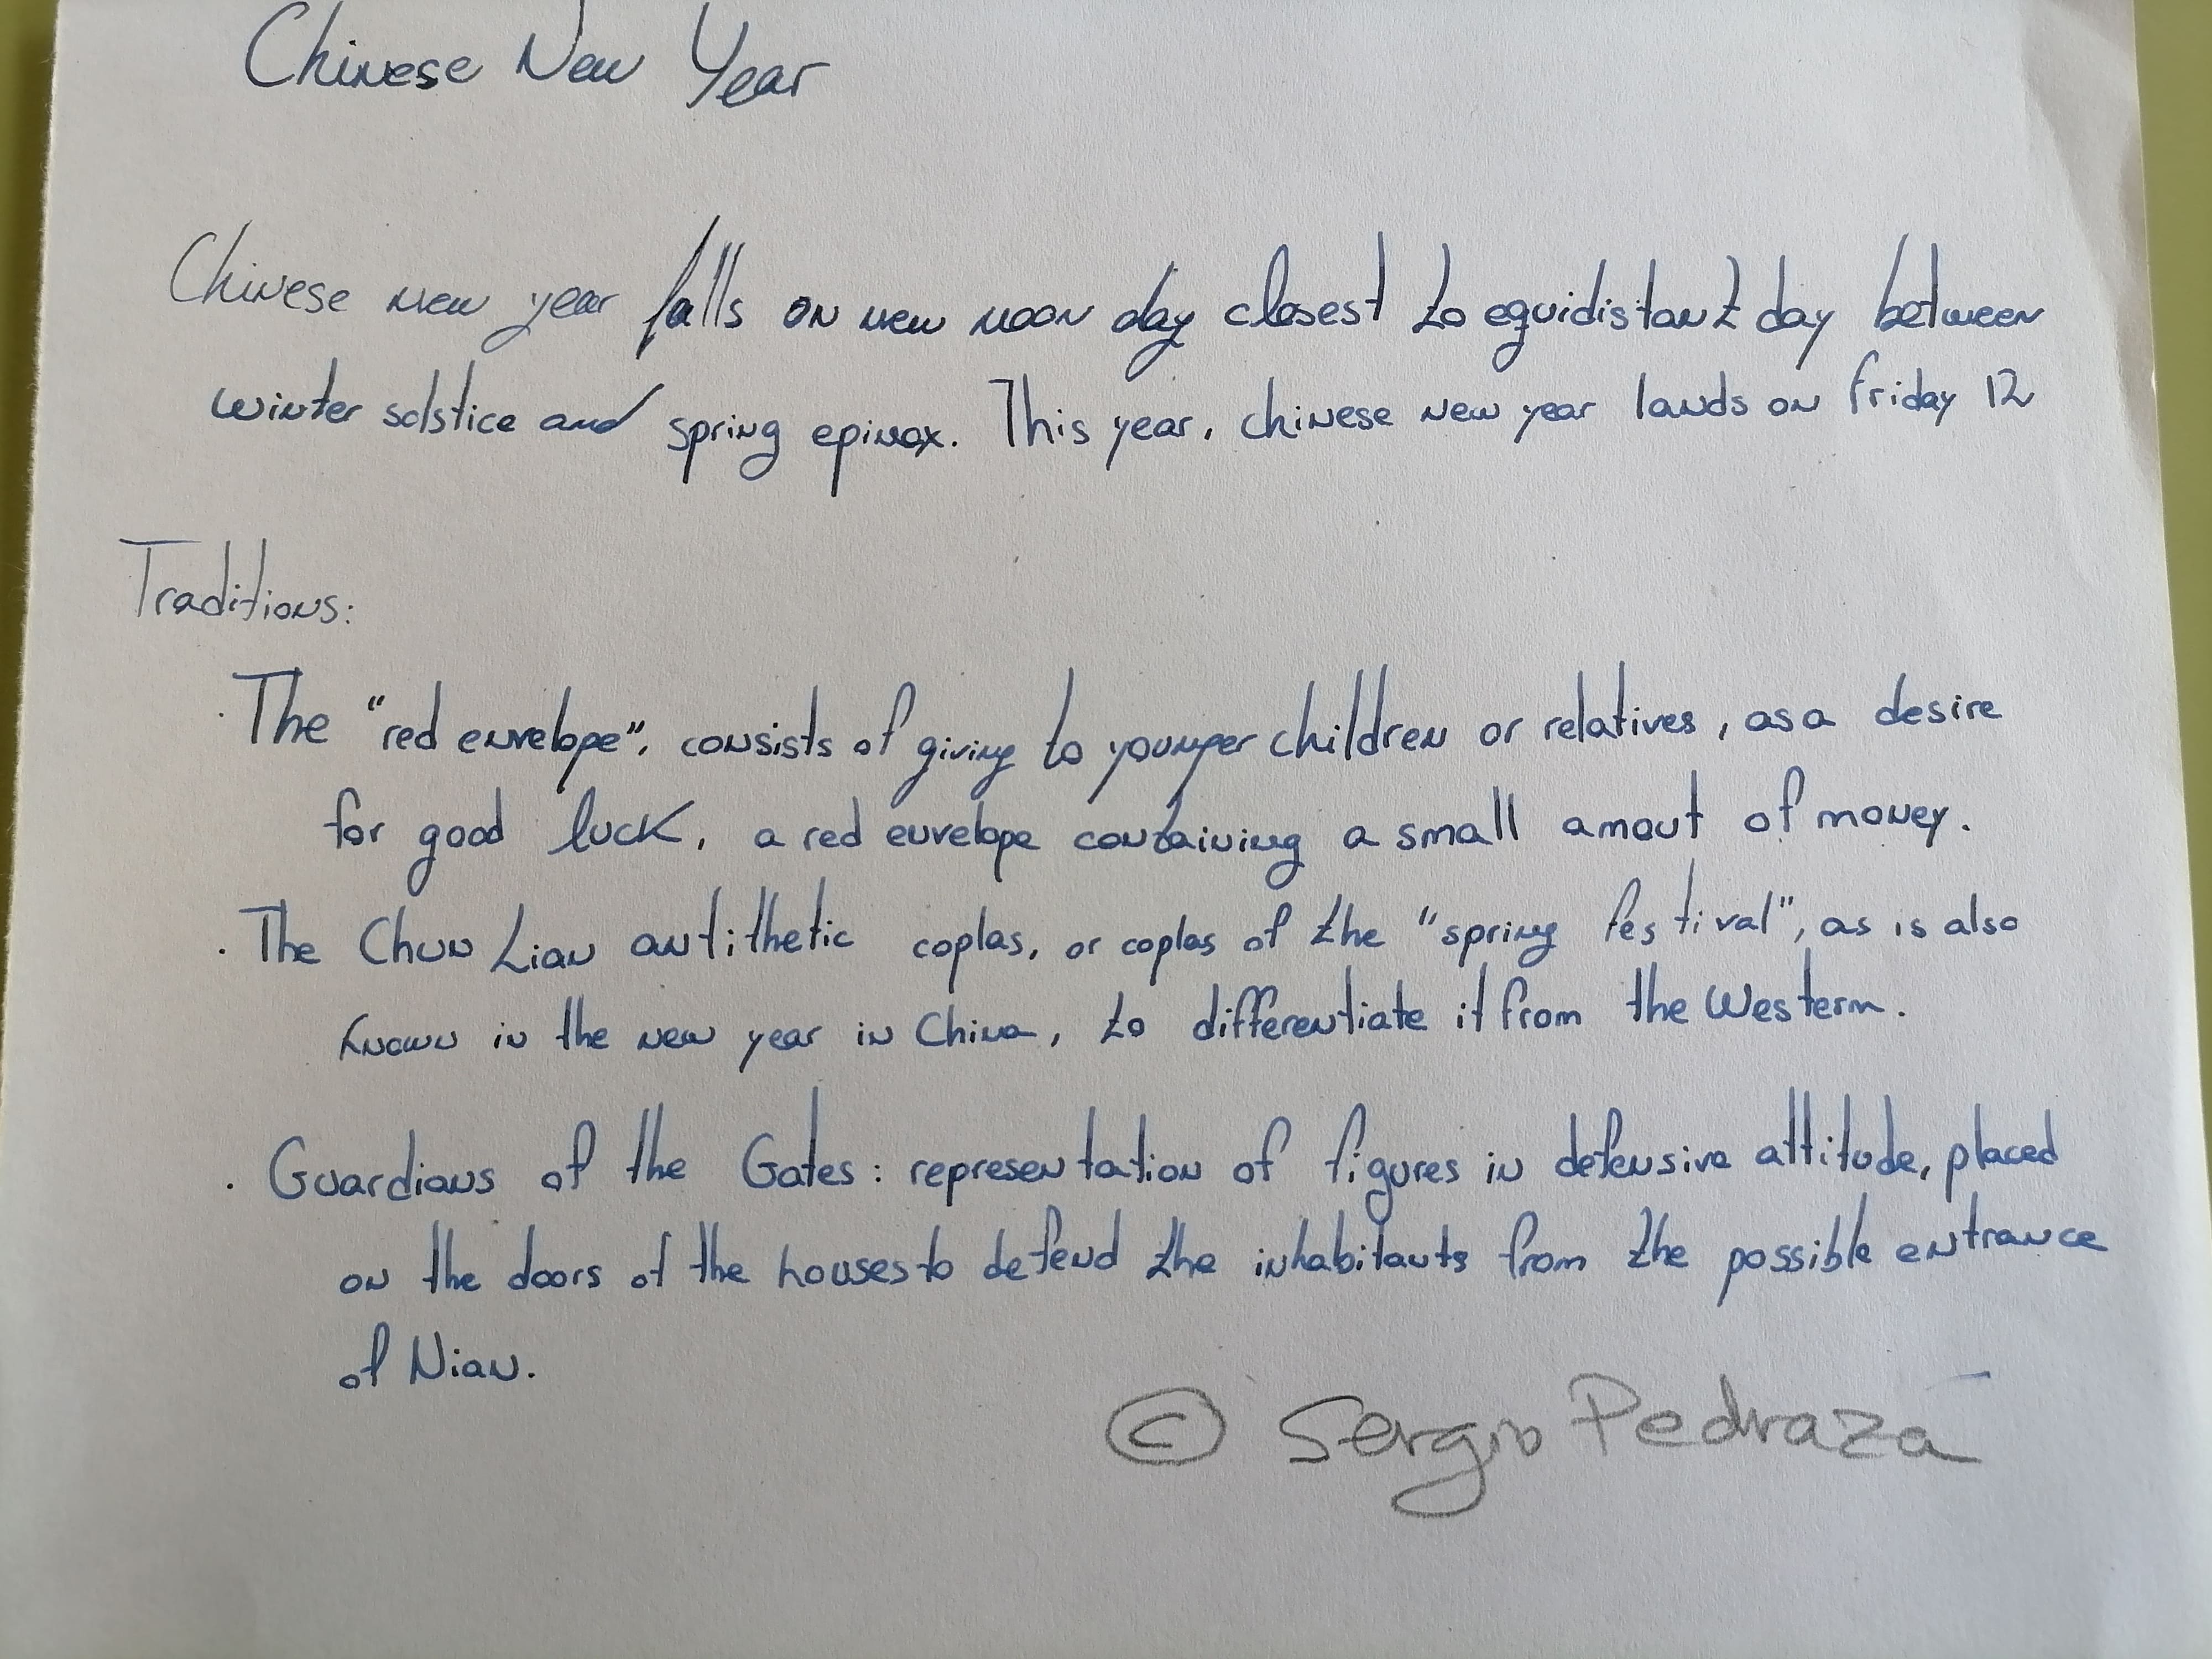 Chinese New Year
Chinese new year falls on new moon day closest to equidistant day between
winter solstice and spring epinox. This year, chinese new year lands on friday 12
Traditions:
· The "red envelope", consists of giving to younger children or relatives, as a desire
for good luck, a red envelope containing a small amout of money.
· The Chun Lian antithetic coplas, or coplas of the "spring festival", as is also
known in the new year in China, to differentiate it from the Western.
· Guardians of the Gates: representation of figures in defensive attitude, placed
on the doors of the houses to defend the inhabitants from the possible entrance
of Nian.
© Sergio Pedraza